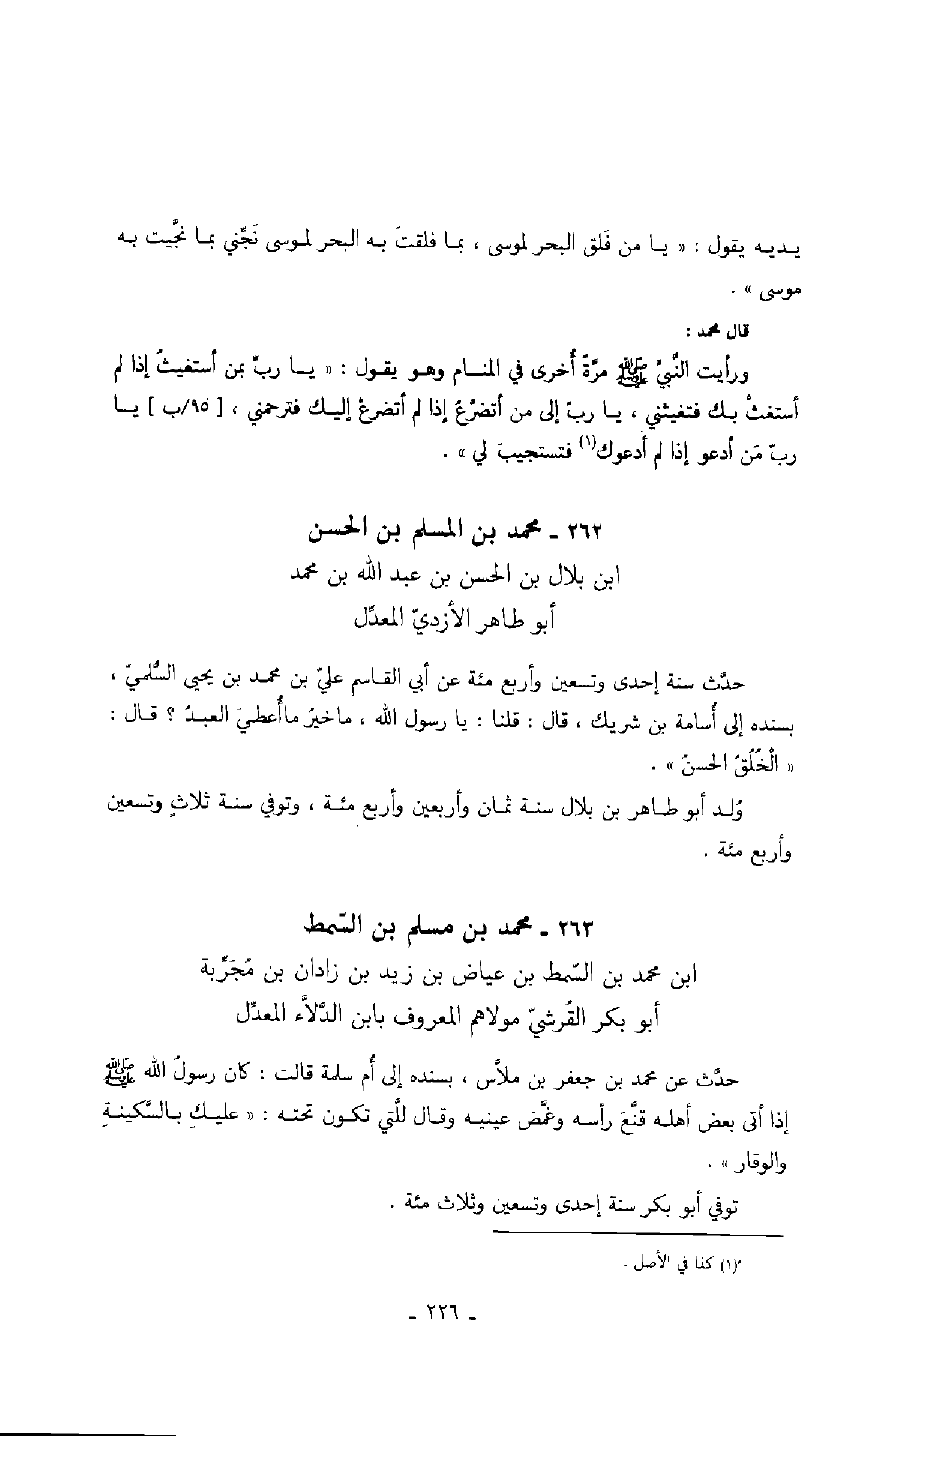 يديه يقول : « يا من فَلق البحر لموسى ، بما فلقتَ به البحر لموسى نَجِّني بما نجَّيت به
موسى » .
قال محمد :
ورأيت النَّبيَّ ﷺ مرّةً أُخرى في المنام وهو يقول : « يا ربِّ بمن أستغيثُ إذا لم
أستغثْ بك فتغيثني ، يا ربّ إلى من أتضرَّعُ إذا لم أتضرعْ إليك فترحمني ، [ ٩٥/ب ] يا
ربّ مَن أدعو إذا لم أدعوك(١) فتستجيبَ لي » .
٢٦٢ ـ محمد بن المسلم بن الحسن
ابن بلال بن الحسن بن عبد الله بن محمد
أبو طاهر الأزديّ المعدَّل
حدَّث سنة إحدى وتسعين وأربع مئة عن أبي القاسم عليّ بن محمد بن يحيى السُّلميّ ،
بسنده إلى أُسامة بن شريك ، قال : قلنا : يا رسول الله ، ماخيرُ ماأُعطيَ العبدُ ؟ قال :
« الْخُلُقُ الحسنُ » .
وُلد أبو طاهر بن بلال سنة ثمان وأربعين وأربع مئة ، وتوفي سنة ثلاثٍ وتسعين
وأربع مئة .
٢٦٣ ـ محمد بن مسلم بن السِّمط
ابن محمد بن السِّمط بن عياض بن زيد بن زادان بن مُجَرِّبة
أبو بكر القُرشيّ مولاهم المعروف بابن الدَّلاَّء المعدَّل
حدَّث عن محمد بن جعفر بن ملاَّس ، بسنده إلى أُم سلمة قالت : كان رسولُ الله ﷺ
إذا أتى بعض أهله قنَّعَ رأسه وغمَّض عينيه وقال للَّتي تكون تحته : « عليكِ بالسَّكينةِ
والوقار » .
توفي أبو بكر سنة إحدى وتسعين وثلاث مئة .
(١) كذا في الأصل .
ـ ٢٢٦ ـ